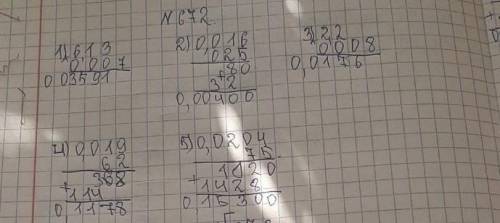 №672.
1) 613
0,007
0,03591
2) 0,016
025
+80
32
0,00400
3) 22
0008
0,0176
4) 0,019
62
+ 368
114
0,1178
5) 0,0204
75
+ 1120
1428
0,15300